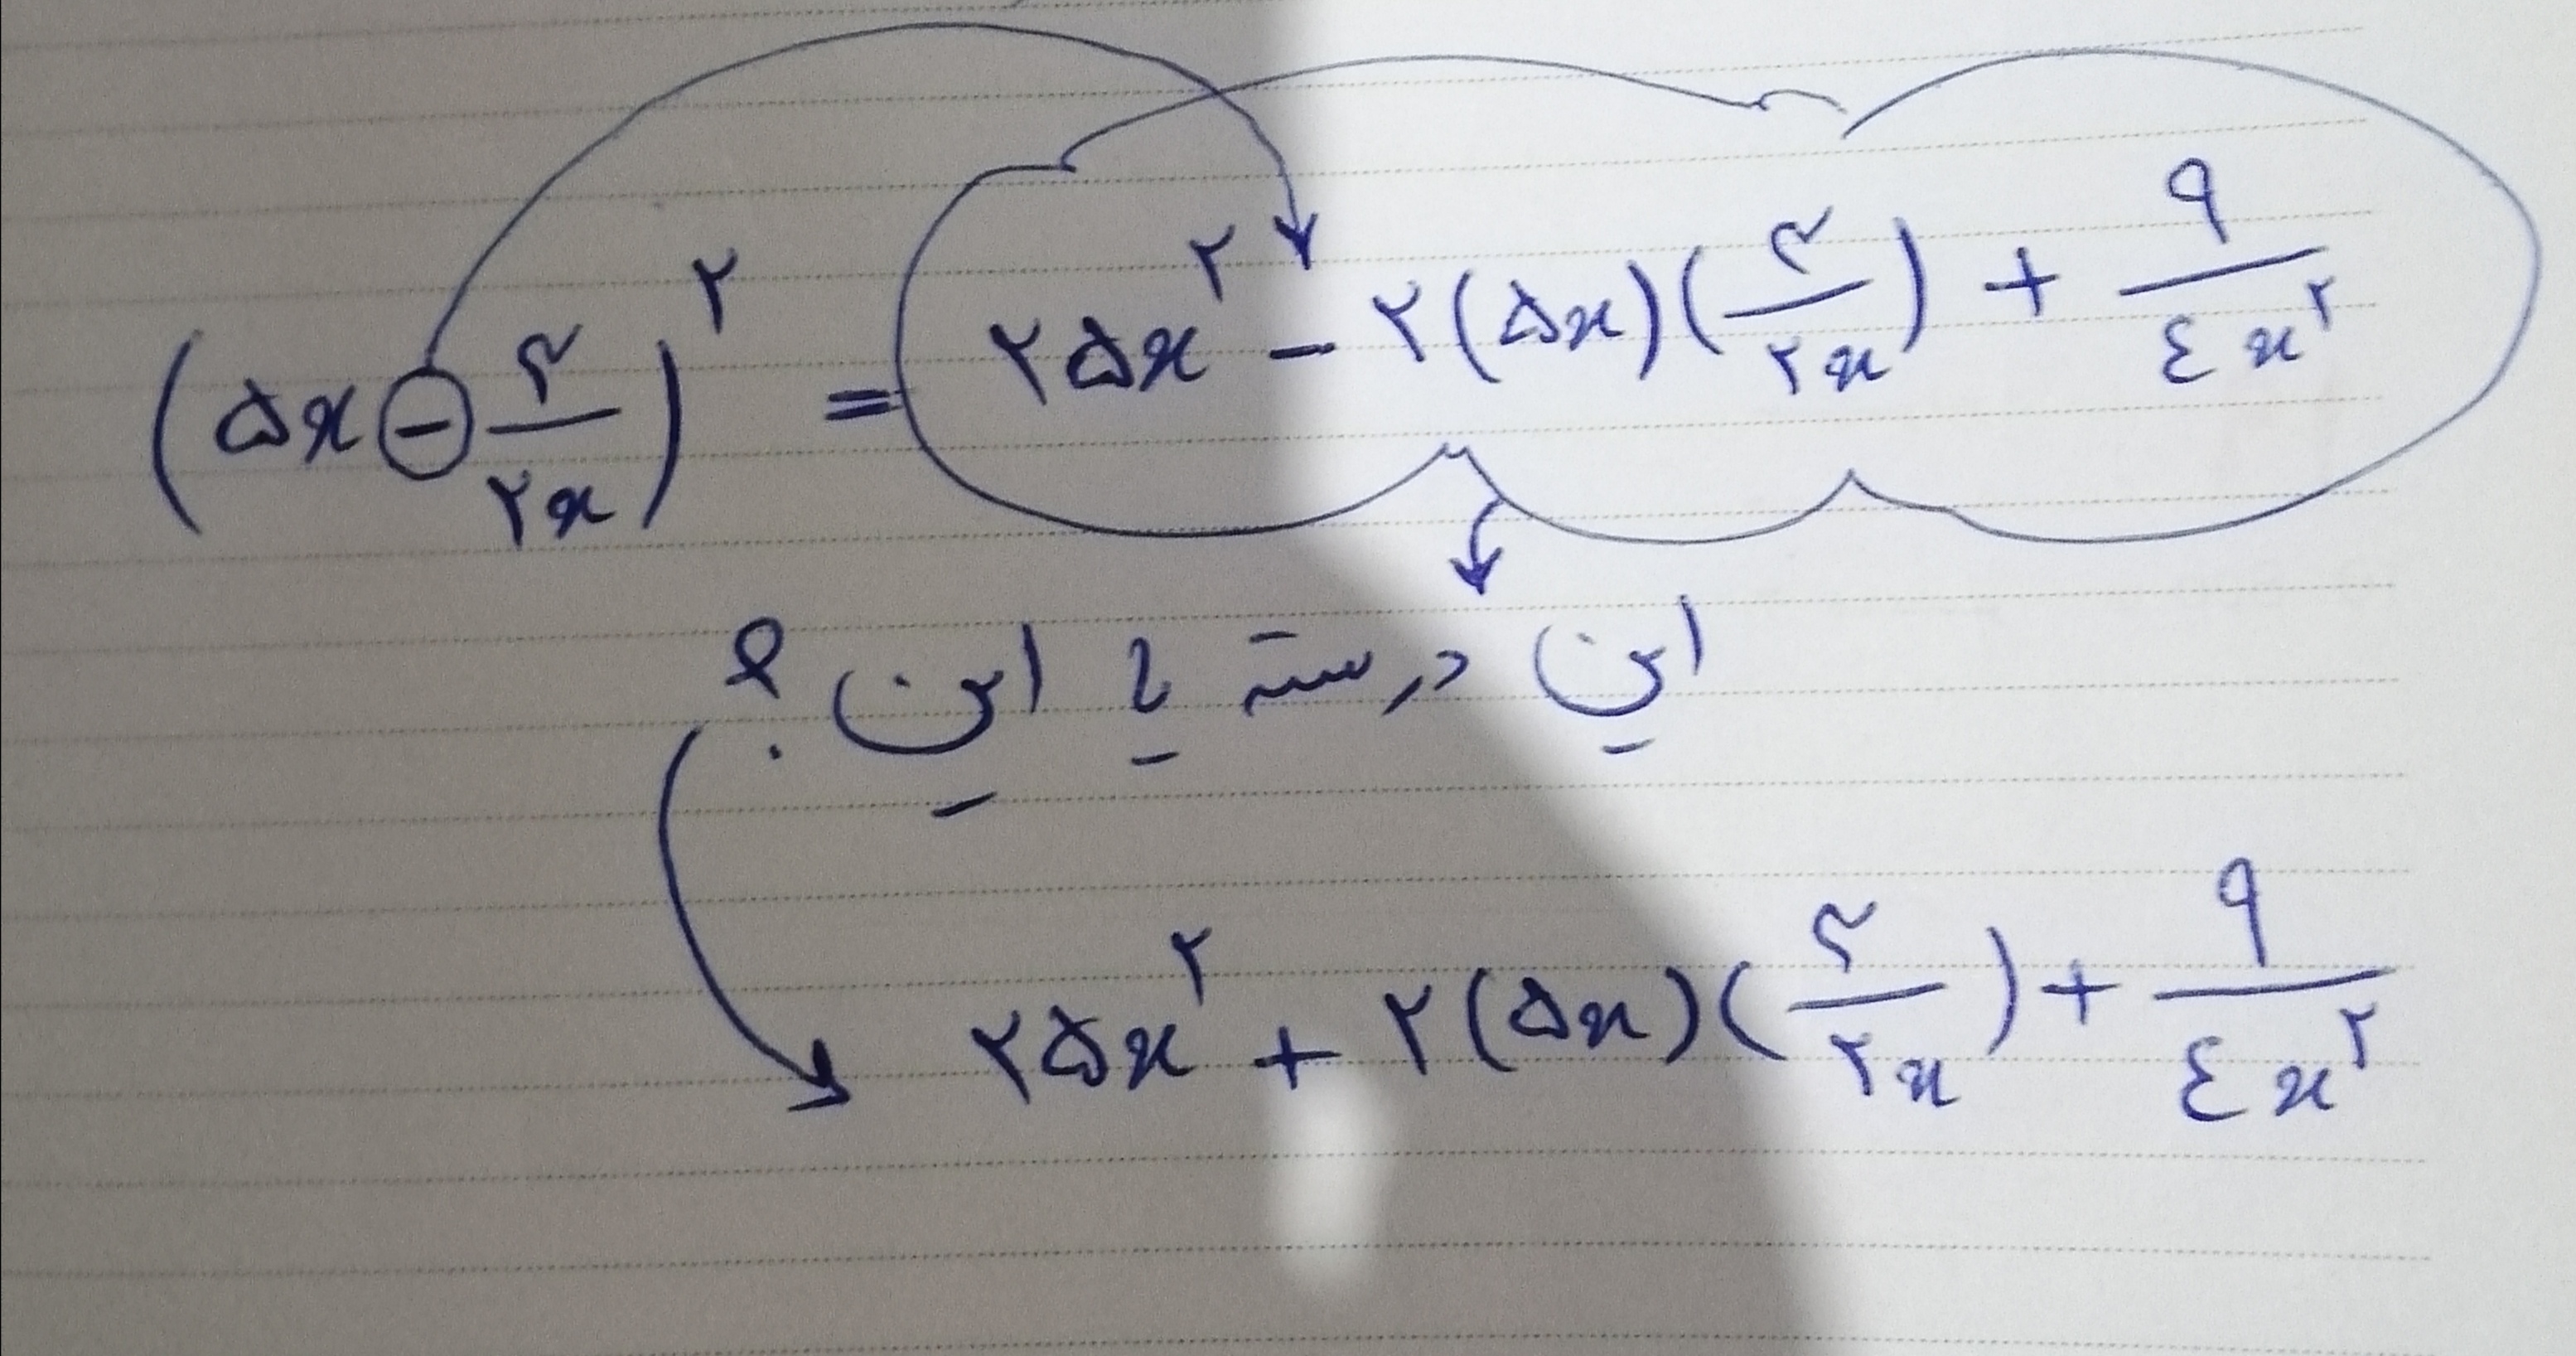 (۵x - ۳/۲x)^۲ = ۲۵x^۲ - ۲(۵x)(۳/۲x) + ۹/٤x^۲
این درسته یا این ؟
۲۵x^۲ + ۲(۵x)(۳/۲x) + ۹/٤x^۲